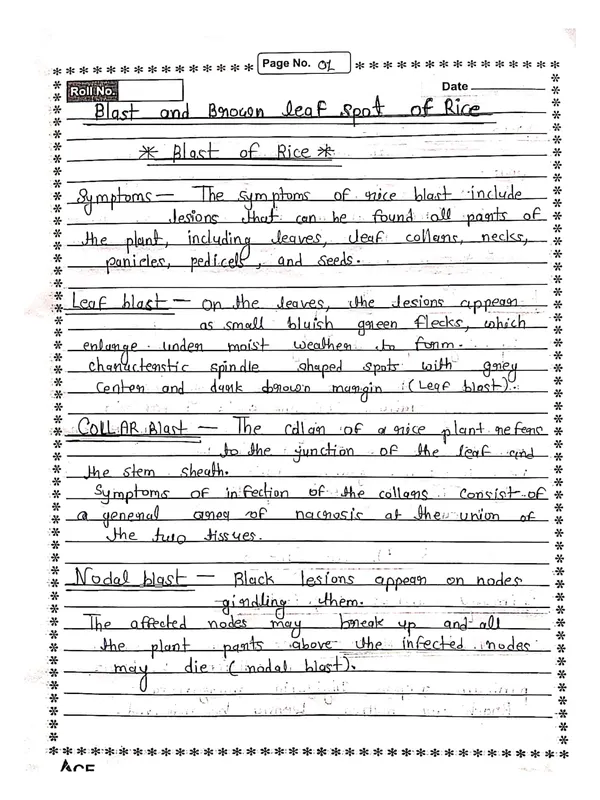 Page No. 01
Roll No.
Date
Blast and Brown leaf spot of Rice
* Blast of Rice *
Symptoms — The symptoms of rice blast include
lesions that can be found all parts of
the plant, including leaves, leaf collars, necks,
panicles, pedicels, and seeds.
Leaf blast — on the leaves, the lesions appear
as small bluish green flecks, which
enlarge under moist weather to form.
characteristic spindle shaped spots with grey
center and dark brown margin (Leaf blast).
COLLAR Blast — The collar of a rice plant refers
to the junction of the leaf and
the stem sheath.
Symptoms of infection of the collars consist of
a general area of nacrosis at the union of
the two tissues.
Nodal blast — Black lesions appear on nodes
girdling them.
The affected nodes may break up and all
the plant parts above the infected nodes
may die (nodal blast).
ACE